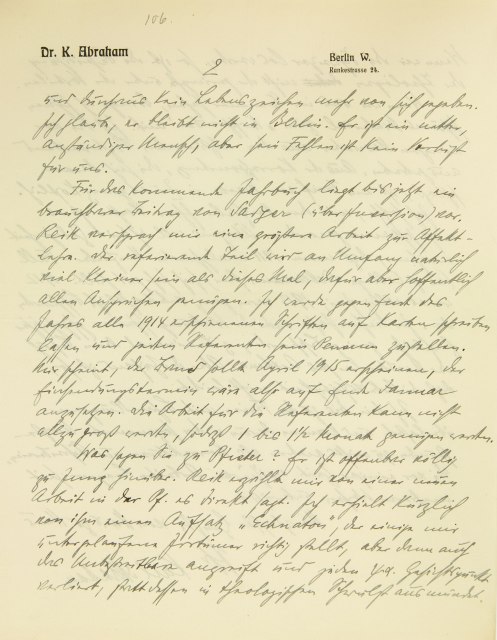 106.
Dr. K. Abraham
Berlin W.
Rankestrasse 24.
2
und durchaus kein Lebenszeichen mehr von sich gegeben.
Ich glaube, er bleibt nicht in Berlin. Er ist ein netter,
anständiger Mensch, aber sein Fehlen ist kein Verlust
für uns.
Für das kommende Jahrbuch liegt bis jetzt ein
brauchbarer Beitrag von Sadger (über Inversion) vor.
Reik versprach mir eine größere Arbeit zur Affekt-
lehre. Der referierende Teil wird an Umfang natürlich
viel kleiner sein als dieses Mal, dafür aber hoffentlich
allen Ansprüchen genügen. Ich werde gegen Ende des
Jahres alle 1914 erschienenen Schriften auf Karten schreiben
lassen und jedem Referenten sein Pensum zustellen.
Mir scheint, der Band sollte April 1915 erscheinen, der
Einsendungstermin wäre also auf Ende Januar
anzusetzen. Die Arbeit für die Referenten kann nicht
allzu groß werden, sodaß 1 bis 1½ Monat genügen werden.
Was sagen Sie zu Pfister? Er ist offenbar völlig
zu Jung hinüber. Reik erzählte mir von einer neuen
Arbeit, in der Pf. es direkt sagt. Ich erhielt kürzlich
von ihm einen Aufsatz „Echnaton", der einige mir
untergelaufene Irrtümer richtig stellt, aber dann auch
das Unbestreitbare angreift und jeden ψα. Gesichtspunkt
verliert, statt dessen in theologischen Schwulst ausmündet.